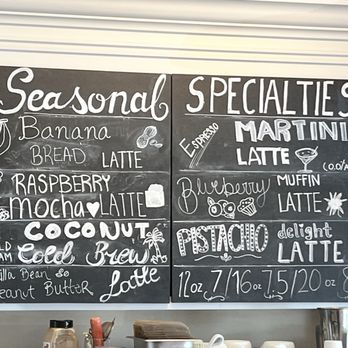 Seasonal
Banana
BREAD LATTE
RASPBERRY
Mocha LATTE
COCONUT
Cold Brew
Bean
Butter Latte
SPECIALTIES
ESPRESSO
MARTINI
LATTE
Blueberry MUFFIN
LATTE
PISTACHIO delight
LATTE
12oz, 7/16oz 7.5/20oz